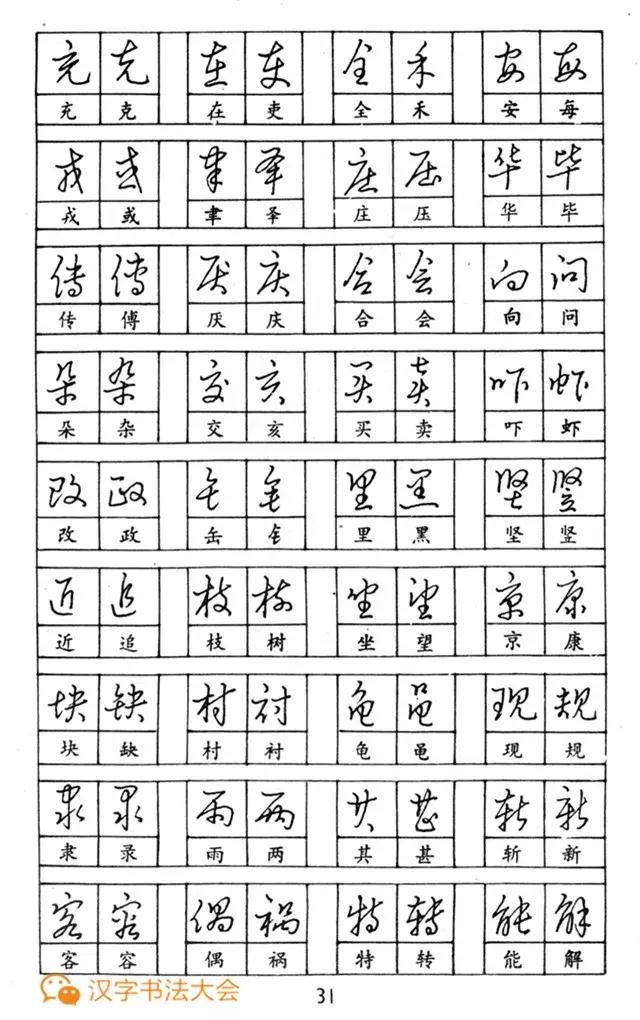 充 克 在 吏 全 禾 安 每
充 克 在 吏 全 禾 安 每
戎 或 庄 压 华 毕
戎 或 庄 压 华 毕
传 傅 厌 庆 合 会 向 问
传 傅 厌 庆 合 会 向 问
朵 杂 交 亥 买 卖 吓 虾
朵 杂 交 亥 买 卖 吓 虾
改 政 缶 钅 里 黑 坚 竖
改 政 缶 钅 里 黑 坚 竖
近 追 枝 树 坐 望 京 康
近 追 枝 树 坐 望 京 康
块 缺 村 衬 龟 黾 现 规
块 缺 村 衬 龟 黾 现 规
隶 录 雨 两 其 甚 斩 新
隶 录 雨 两 其 甚 斩 新
客 容 偶 祸 特 转 能 解
客 容 偶 祸 特 转 能 解
汉字书法大会
31